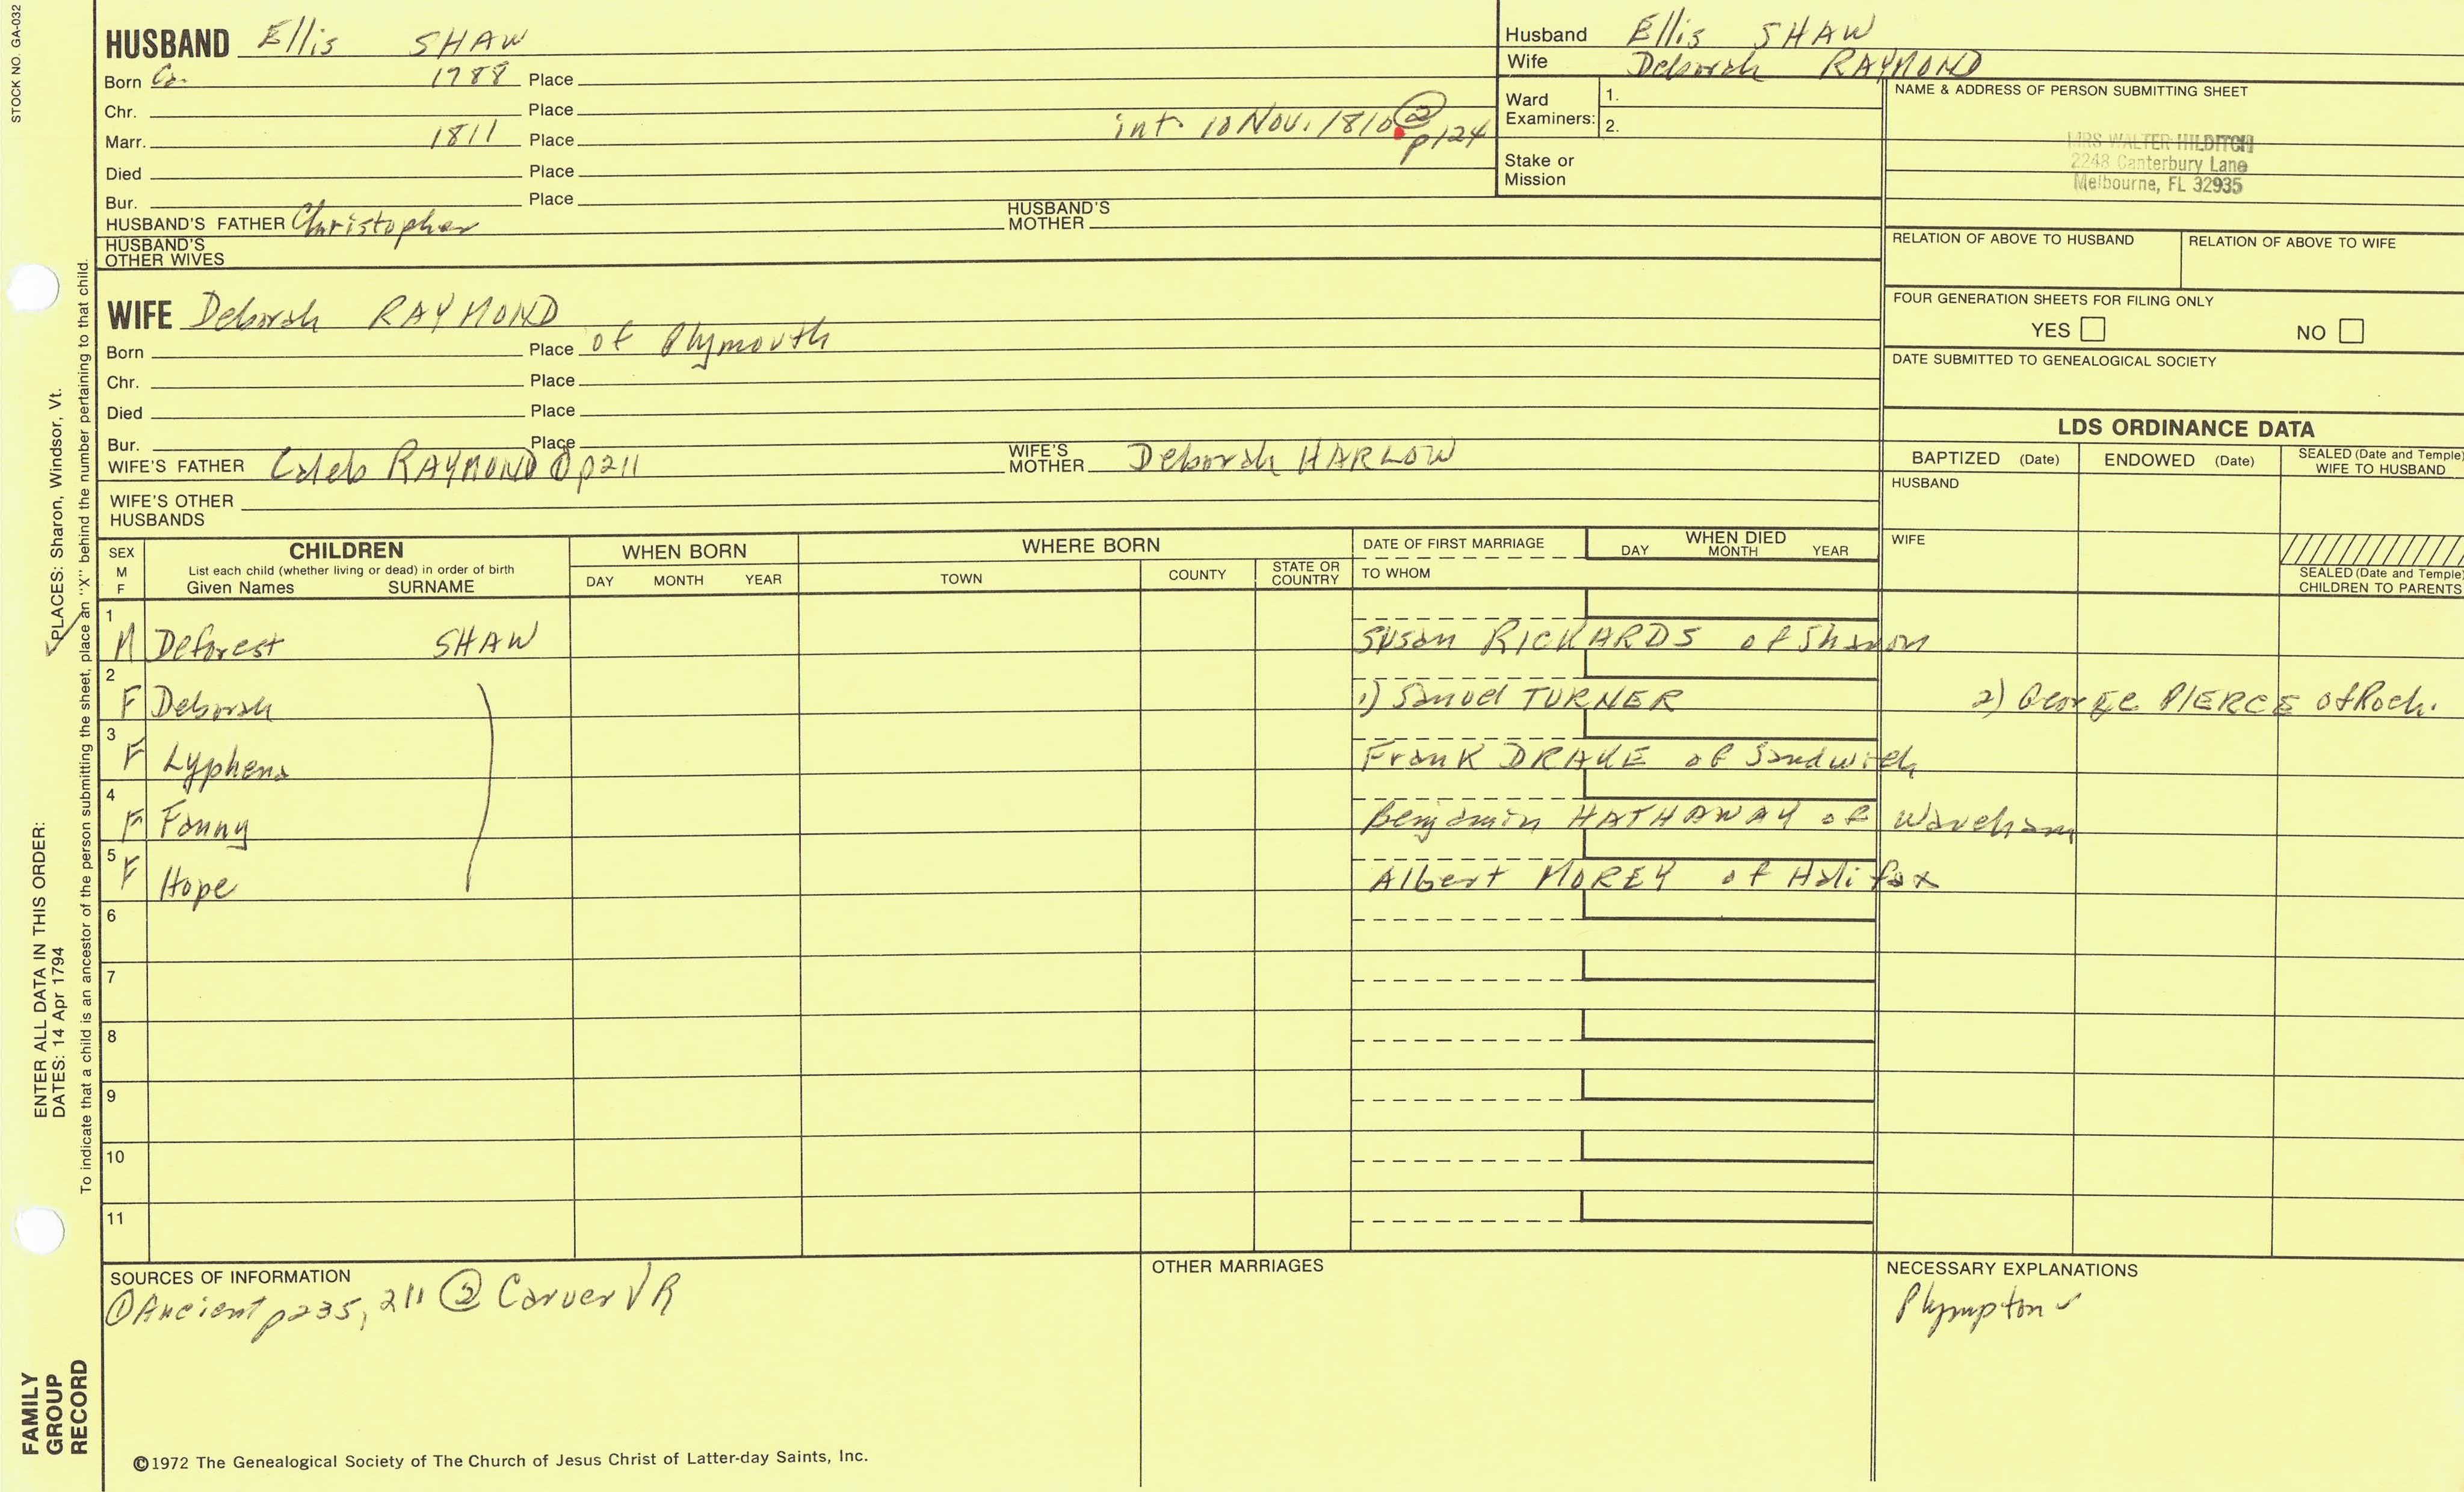 STOCK NO. GA-032
HUSBAND Ellis SHAW
Born Ca. 1788 Place
Chr. Place
Marr. 1811 Place int. 10 Nov. 1810 ② p124
Died Place
Bur. Place
HUSBAND'S FATHER Christopher HUSBAND'S MOTHER
HUSBAND'S OTHER WIVES
Husband Ellis SHAW
Wife Deborah RAYMOND
Ward Examiners: 1.
2.
Stake or Mission
NAME & ADDRESS OF PERSON SUBMITTING SHEET
MRS WALTER HILDITCH
2248 Canterbury Lane
Melbourne, FL 32935
RELATION OF ABOVE TO HUSBAND RELATION OF ABOVE TO WIFE
FOUR GENERATION SHEETS FOR FILING ONLY
YES NO
DATE SUBMITTED TO GENEALOGICAL SOCIETY
WIFE Deborah RAYMOND
Born Place of Plymouth
Chr. Place
Died Place
Bur. Place
WIFE'S FATHER Caleb RAYMOND ① p211 WIFE'S MOTHER Deborah HARLOW
WIFE'S OTHER HUSBANDS
LDS ORDINANCE DATA
BAPTIZED (Date) ENDOWED (Date) SEALED (Date and Temple) WIFE TO HUSBAND
HUSBAND
WIFE
SEALED (Date and Temple) CHILDREN TO PARENTS
SEX M F
CHILDREN
List each child (whether living or dead) in order of birth
Given Names SURNAME
WHEN BORN
DAY MONTH YEAR
WHERE BORN
TOWN COUNTY STATE OR COUNTRY
DATE OF FIRST MARRIAGE
TO WHOM
WHEN DIED
DAY MONTH YEAR
1 M Deforest SHAW Susan RICKARDS of Sharon
2 F Deborah 1) Samuel TURNER 2) George PIERCE of Roch.
3 F Lyphena Frank DRAKE of Sandwich
4 F Fanny Benjamin HATHAWAY of Wareham
5 F Hope Albert MOREY of Halifax
6
7
8
9
10
11
SOURCES OF INFORMATION
① Ancient p235, 211 ② Carver VR
OTHER MARRIAGES
NECESSARY EXPLANATIONS
Plympton ✓
©1972 The Genealogical Society of The Church of Jesus Christ of Latter-day Saints, Inc.
FAMILY GROUP RECORD
ENTER ALL DATA IN THIS ORDER:
DATES: 14 Apr 1794
✓PLACES: Sharon, Windsor, Vt.
To indicate that a child is an ancestor of the person submitting the sheet, place an "X" behind the number pertaining to that child.